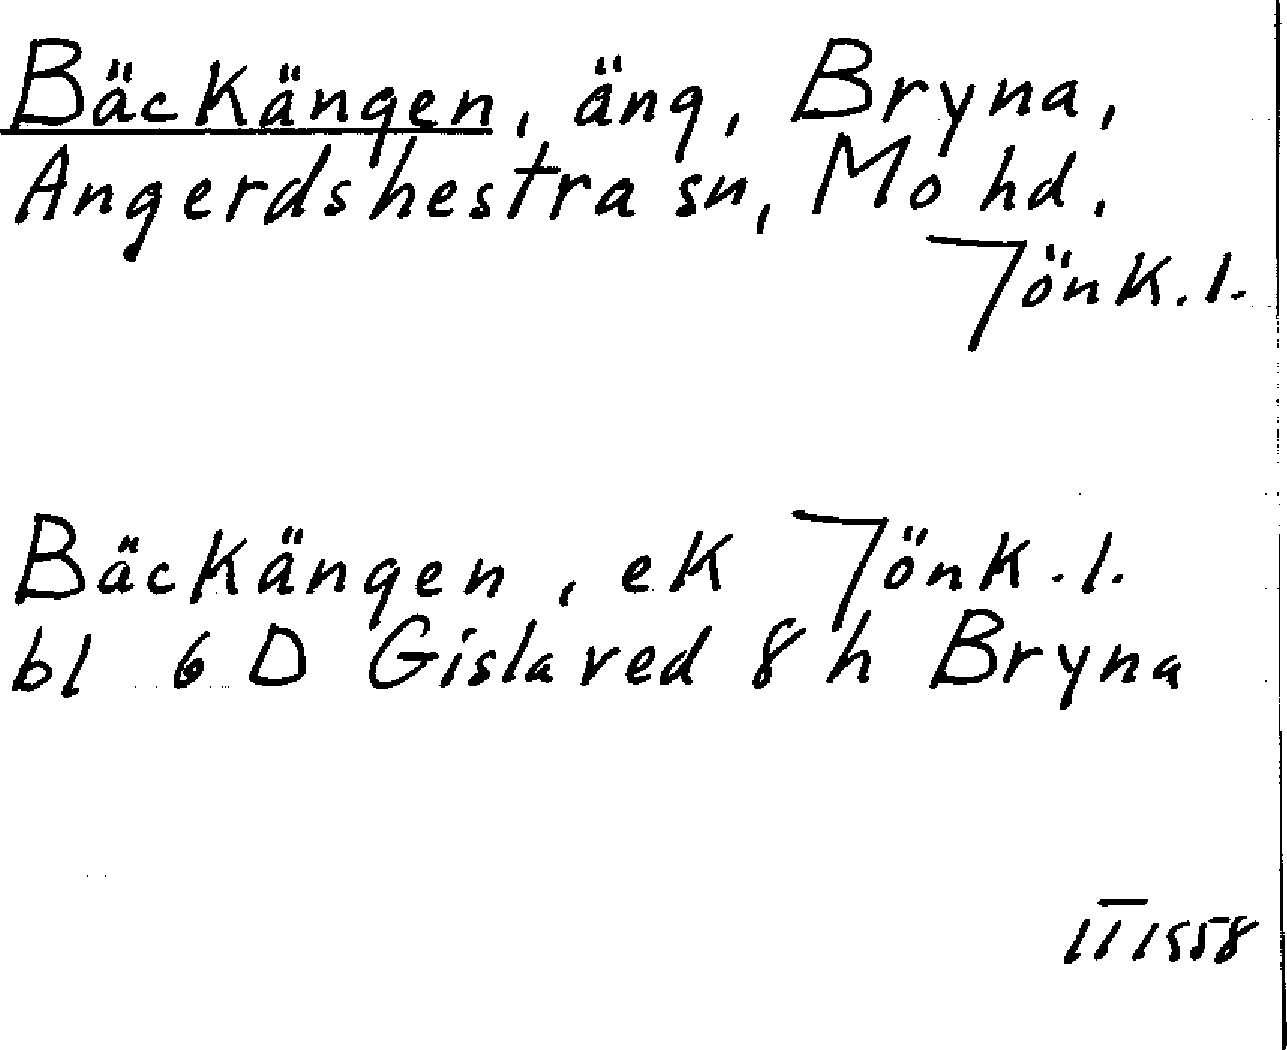 Bäckängen, äng, Bryna,
Angerdshestra sn, Mo hd.
Jönk.l.
Bäckängen, ek Jönk.l.
bl 6 D Gislaved 8 h Bryna